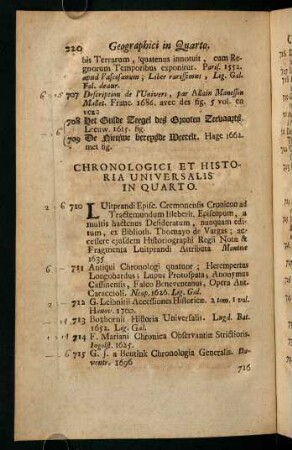 220 Geographici in Quarto.
bis Terrarum, quatenus innotuit, cum Re-
gnorum Temporibus exponitur. Paris. 1552.
apud Vascosanum; Liber rarissimus, Lig. Gal.
Fol. deaur.
6 15 707 Description de l'Univers, par Alain Manesson
Mallet. Franc. 1686. avec des fig. 5 vol. en
veau
708 Het Gulde Zeegel des Grooten Zeevaarts
Leeuw. 1615. fig.
709 De Nieuwe bereysde Weerelt. Hage 1662.
met fig.
CHRONOLOGICI ET HISTO-
RIA UNIVERSALIS
IN QUARTO.
2 6 710 Luitprandi Episc. Cremonensis Cronicon ad
Tractemundum Illeberit. Episcopum, a
multis hactenus Desideratum, nunquam edi-
tum, ex Biblioth. Thomayo de Vargas; ac-
cessere ejusdem Historiographi Regii Notæ &
Fragmenta Luitprandi Attributa. Mantuæ
1635
711 Antiqui Chronologi quatuor; Herempertus
Longobardus; Lupus Protospata; Anonymus
Cassinensis, Falco Beneventanus, Opera Ant.
Caraccioli. Neap. 1626. Lig. Gal.
712 G. Leibnitii Accessiones Historicæ. 2 tom. 1 vol.
Hanov. 1700.
713 Boxhornii Historia Universalis. Lugd. Bat.
1652. Lig. Gal.
714 F. Mariani Chronica Observantiæ Strictioris.
Ingolst. 1625.
6 715 G. J. a Bentink Chronologia Generalis. Da-
ventr. 1696
716